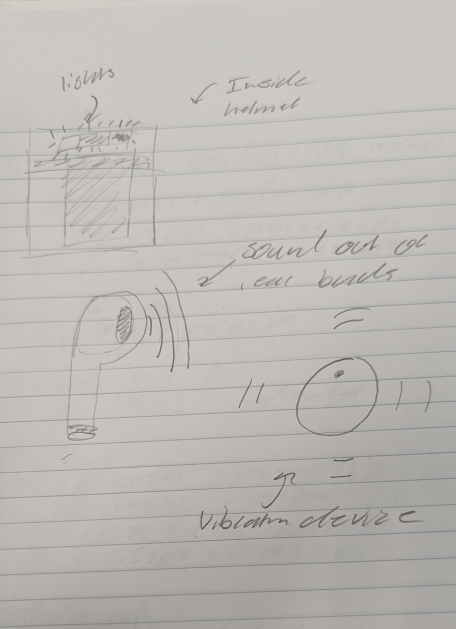 lights
Inside
helmet
sound out of
ear buds
vibratn device